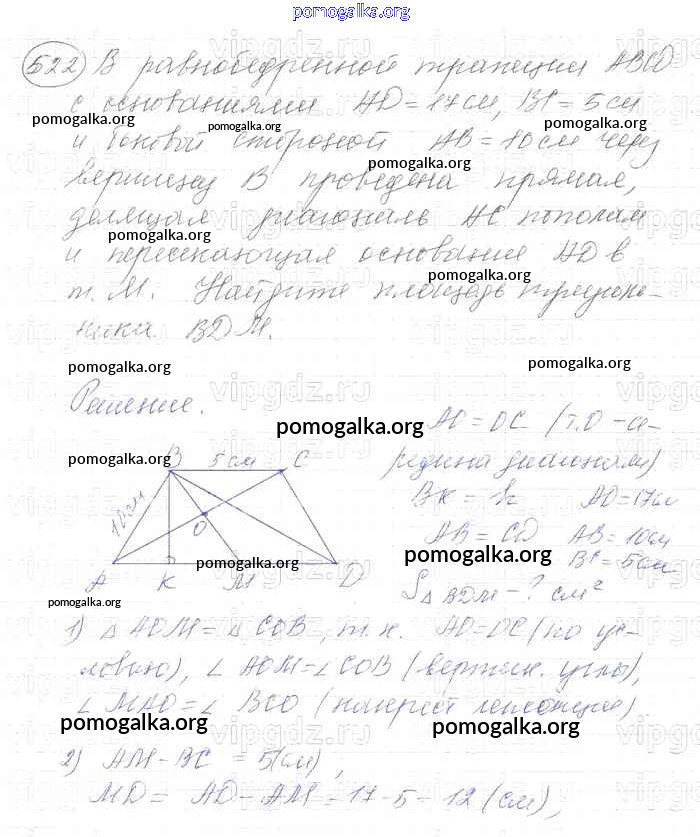 pomogalka.org
522 В равнобедренной трапеции ABCD
с основаниями AD = 17 см, BC = 5 см
pomogalka.org pomogalka.org pomogalka.org
и боковой стороной AB = 10 см через
pomogalka.org
вершину B проведена прямая,
делящая диагональ AC пополам
pomogalka.org
и пересекающая основание AD в
pomogalka.org
т. M. Найдите площадь треуголь-
ника BDM.
pomogalka.org pomogalka.org
Решение.
pomogalka.org
AO = OC (т.O - се-
pomogalka.org
B 5 см C
редина диагонали)
BK = h AD = 17 см
10 см
O
AB = CD AB = 10 см
pomogalka.org pomogalka.org
BC = 5 см
A K M D
S△BDM - ? см²
pomogalka.org
1) △ AOM = △ COB, т.к. AO = OC (по ус-
ловию), ∠ AOM = ∠ COB (вертик. углы),
∠ MAO = ∠ BCO (накрест лежащие)
pomogalka.org pomogalka.org
2) AM = BC = 5 (см),
MD = AD - AM = 17 - 5 = 12 (см),
pomogalka.org